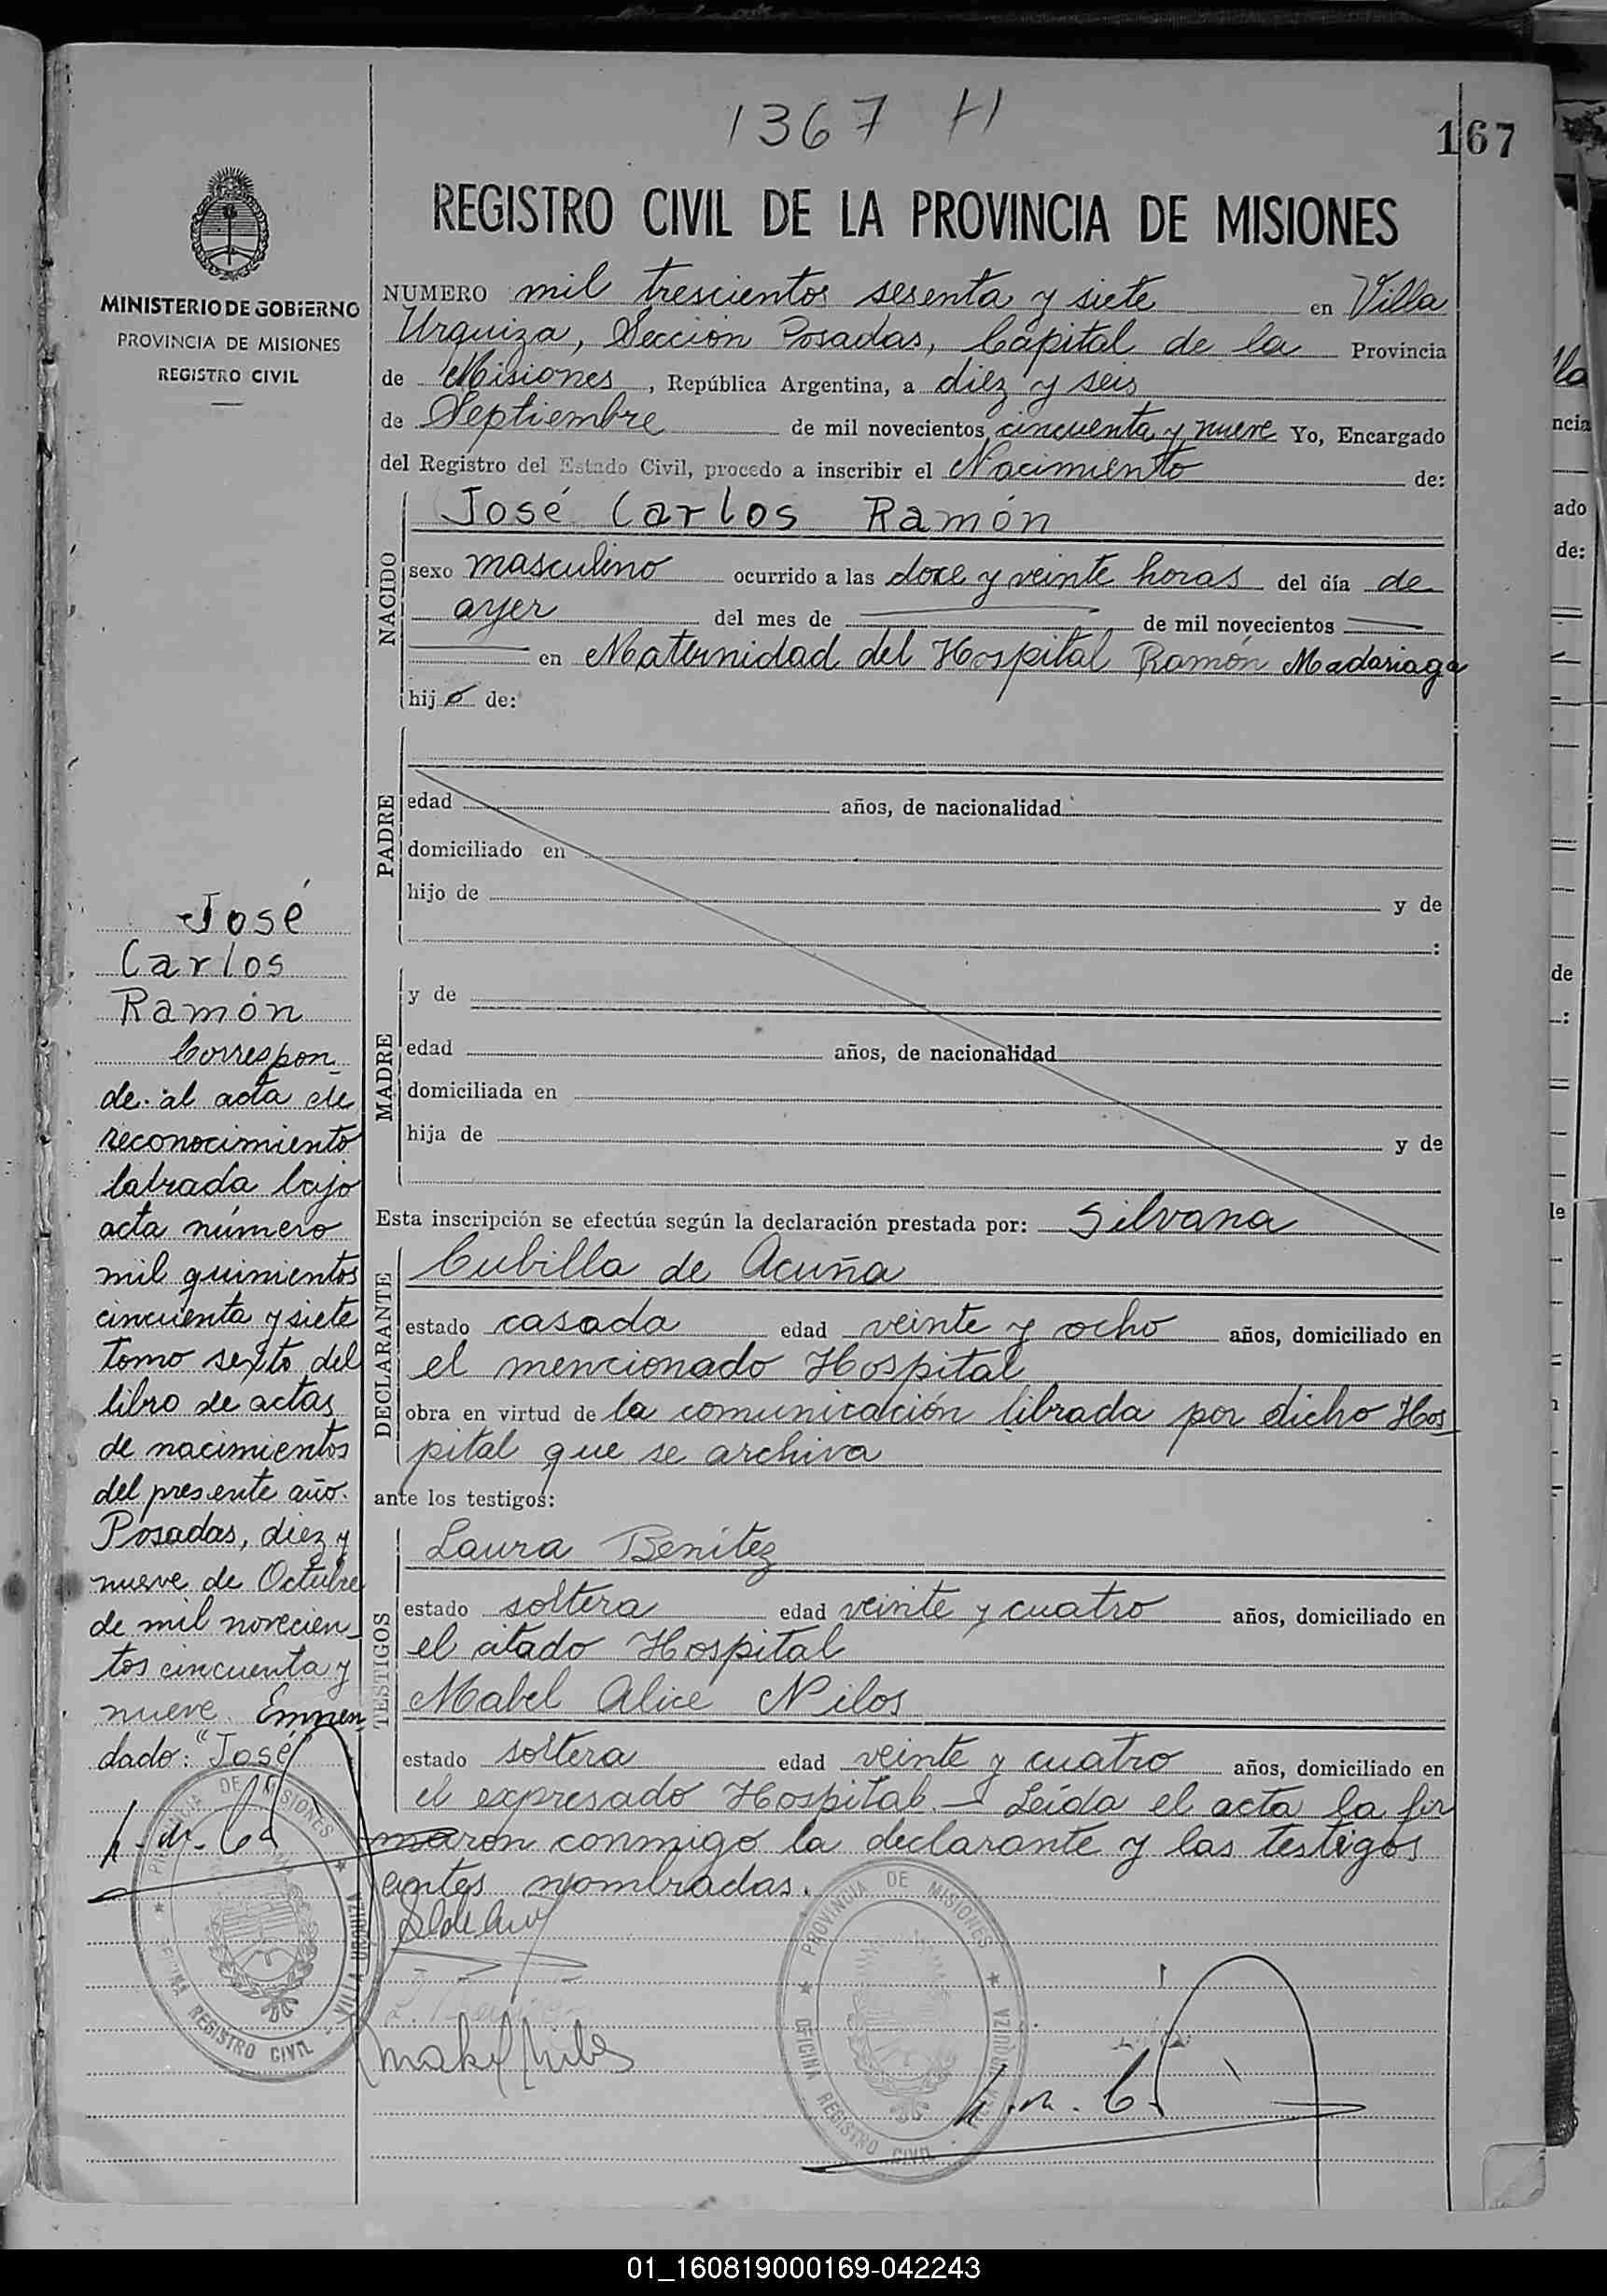 1367 H
167
REGISTRO CIVIL DE LA PROVINCIA DE MISIONES
MINISTERIO DE GOBIERNO
PROVINCIA DE MISIONES
REGISTRO CIVIL
NUMERO mil trescientos sesenta y siete en Villa
Urquiza, Sección Posadas, Capital de la Provincia
de Misiones, República Argentina, a diez y seis
de Septiembre de mil novecientos cincuenta y nueve Yo, Encargado
del Registro del Estado Civil, procedo a inscribir el Nacimiento de:
NACIDO
José Carlos Ramón
sexo masculino ocurrido a las doce y veinte horas del día de
ayer del mes de de mil novecientos
en Maternidad del Hospital Ramón Madariaga
hijo de:
PADRE
edad años, de nacionalidad
domiciliado en
hijo de y de
:
MADRE
y de
edad años, de nacionalidad
domiciliada en
hija de y de
Esta inscripción se efectúa según la declaración prestada por: Silvana
DECLARANTE
Cubilla de Acuña
estado casada edad veinte y ocho años, domiciliado en
el mencionado Hospital
obra en virtud de la comunicación librada por dicho Hos_
pital que se archiva
ante los testigos:
TESTIGOS
Laura Benítez
estado soltera edad veinte y cuatro años, domiciliado en
el citado Hospital
Mabel Alice Nilos
estado soltera edad veinte y cuatro años, domiciliado en
el expresado Hospital.- Leída el acta la fir
maron conmigo la declarante y las testigos
antes nombradas.
José
Carlos
Ramón
Correspon_
de al acta de
reconocimiento
labrada bajo
acta número
mil quinientos
cincuenta y siete
tomo sexto del
libro de actas
de nacimientos
del presente año.
Posadas, diez y
nueve de Octubre
de mil novecien_
tos cincuenta y
nueve. Enmen
dado: "José"
PROVINCIA DE MISIONES
OFICINA REGISTRO CIVIL - VILLA URQUIZA
PROVINCIA DE MISIONES
OFICINA REGISTRO CIVIL - VILLA URQUIZA
Mabel Nilos
ncia
ado
de:
de
:
le
01_160819000169-042243